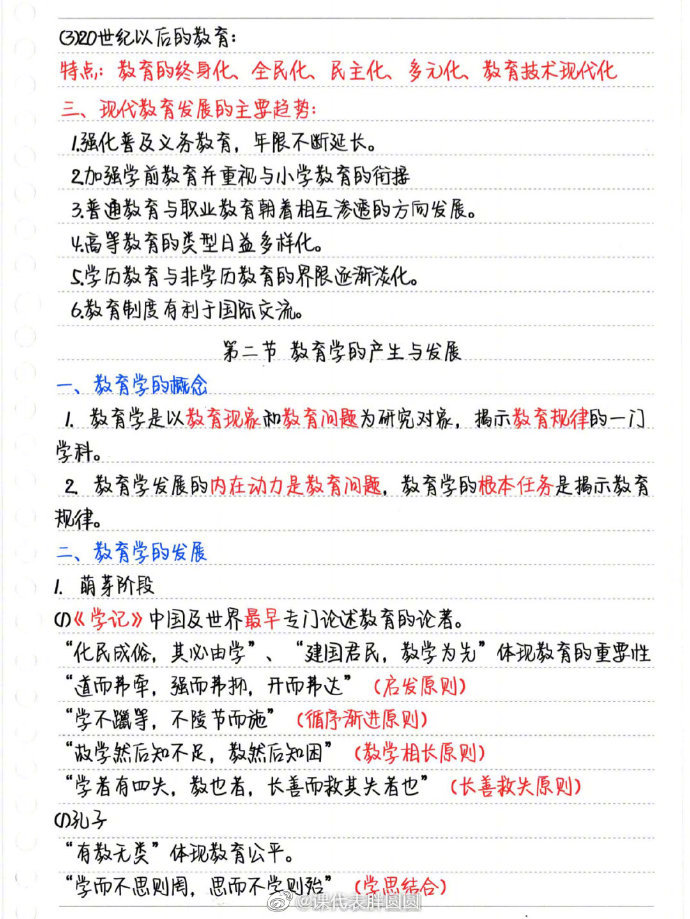 (3)20世纪以后的教育：
特点：教育的终身化、全民化、民主化、多元化、教育技术现代化
三、现代教育发展的主要趋势：
1.强化普及义务教育，年限不断延长。
2.加强学前教育并重视与小学教育的衔接
3.普通教育与职业教育朝着相互渗透的方向发展。
4.高等教育的类型日益多样化。
5.学历教育与非学历教育的界限逐渐淡化。
6.教育制度有利于国际交流。
第二节 教育学的产生与发展
一、教育学的概念
1. 教育学是以教育现象和教育问题为研究对象，揭示教育规律的一门
学科。
2. 教育学发展的内在动力是教育问题，教育学的根本任务是揭示教育
规律。
二、教育学的发展
1. 萌芽阶段
(1)《学记》中国及世界最早专门论述教育的论著。
“化民成俗，其必由学”、“建国君民，教学为先”体现教育的重要性
“道而弗牵，强而弗抑，开而弗达”（启发原则）
“学不躐等，不陵节而施”（循序渐进原则）
“故学然后知不足，教然后知困”（教学相长原则）
“学者有四失，教也者，长善而救其失者也”（长善救失原则）
(1)孔子
“有教无类”体现教育公平。
“学而不思则罔，思而不学则殆”（学思结合）
@课代表胖圆圆